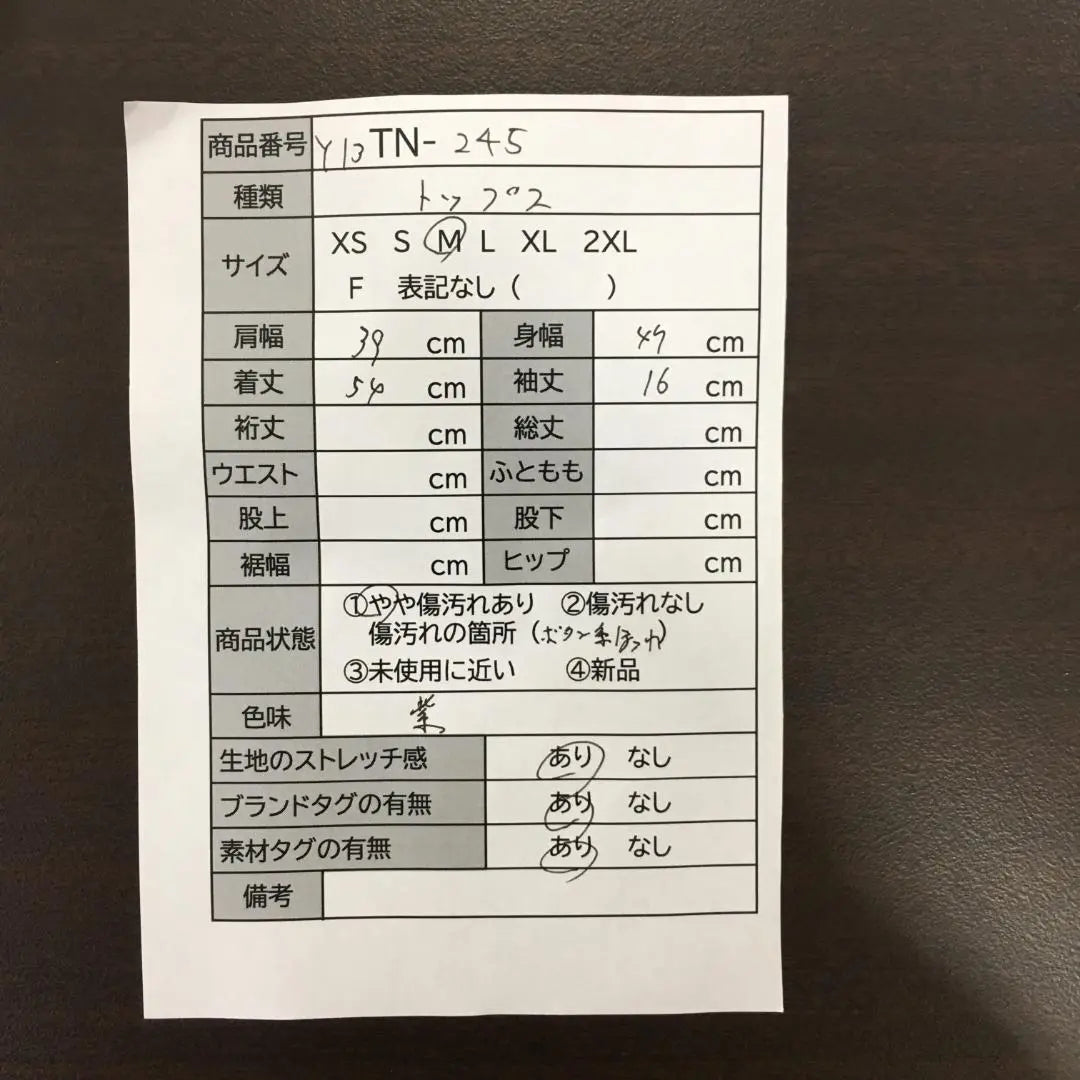 商品番号 Y13TN- 245
種類 トップス
サイズ XS S M L XL 2XL
F 表記なし ( )
肩幅 39 cm 身幅 cm
着丈 54 cm 袖丈 16 cm
裄丈 cm 総丈 cm
ウエスト cm ふともも cm
股上 cm 股下 cm
裾幅 cm ヒップ cm
商品状態 ①やや傷汚れあり ②傷汚れなし
傷汚れの箇所 (ボタン糸ほつれ)
③未使用に近い ④新品
色味 紫
生地のストレッチ感 あり なし
ブランドタグの有無 あり なし
素材タグの有無 あり なし
備考